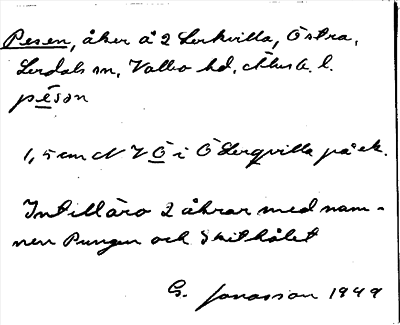 Pesen, åker å 2 Lerkvilla, Östra,
Lerdals sn, Valbo hd, Älvsb. l.
pẹ́sən
1,5 cm N V Ö i Ö Lerqvilla på ek.
Intill äro 2 åkrar med nam-
nen Pungen och Skithålet
G. Jonasson 1949